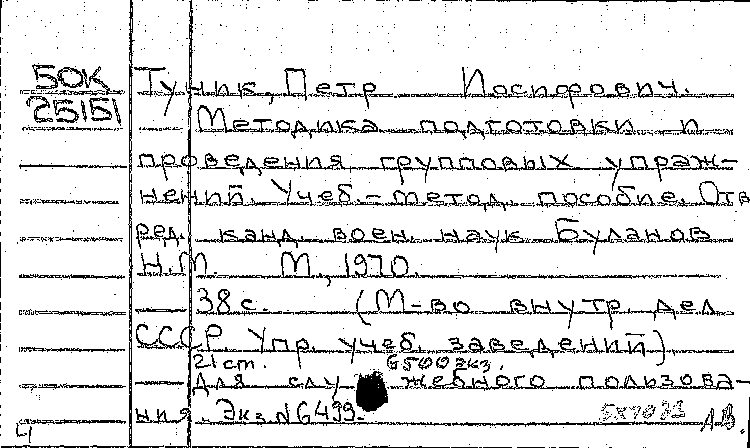 50К
25151
Туник, Петр Иосифович.
Методика подготовки и
проведения групповых упраж-
нений. Учеб.-метод. пособие. Отв
ред. канд. воен. наук Буланов
Н.М. М., 1970.
38 с. (М-во внутр. дел
СССР. Упр. учеб. заведений)
21 cm. 6500 экз.
Для служебного пользова-
ния. Экз. N 6499.
А.В.
Ч